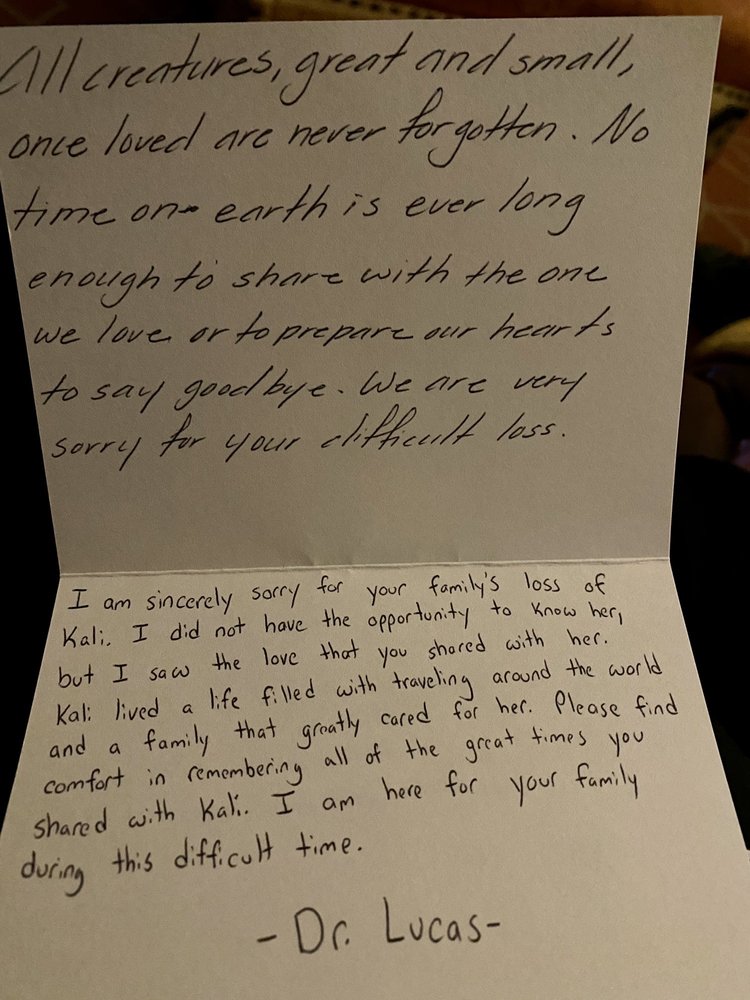 All creatures, great and small,
once loved are never forgotten. No
time on earth is ever long
enough to share with the one
we love or to prepare our hearts
to say goodbye. We are very
sorry for your difficult loss.
I am sincerely sorry for your family's loss of
Kali. I did not have the opportunity to know her,
but I saw the love that you shared with her.
Kali lived a life filled with traveling around the world
and a family that greatly cared for her. Please find
comfort in remembering all of the great times you
shared with Kali. I am here for your family
during this difficult time.
- Dr. Lucas-